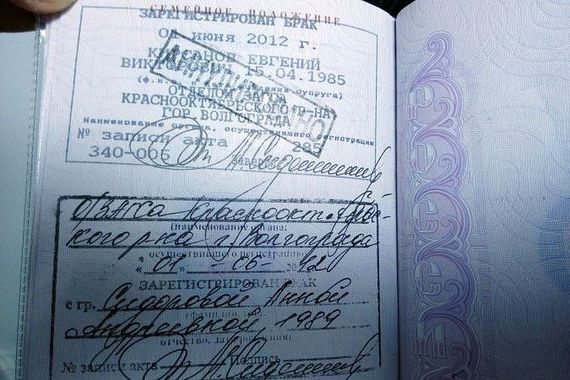 СЕМЕЙНОЕ ПОЛОЖЕНИЕ
ЗАРЕГИСТРИРОВАН БРАК
июня 2012 г.
ЕВГЕНИЙ
15.04.1985
ОТДЕЛОМ ЗАГСА
КРАСНООКТЯБРЬСКОГО Р-НА
ГОР. ВОЛГОГРАДА
Наименование органа, осуществившего регистрацию
№ записи акта 285
340-006
О/ЗАГСа Краснооктябрьс-
кого р-на г. Волгограда
(наименование органа,
осуществившего регистрацию)
"01" - 06 -
ЗАРЕГИСТРИРОВАН БРАК
с гр. Сидоровой Анной
Андреевной, 1989
отчество, дата рождения
№ записи акта Подпись